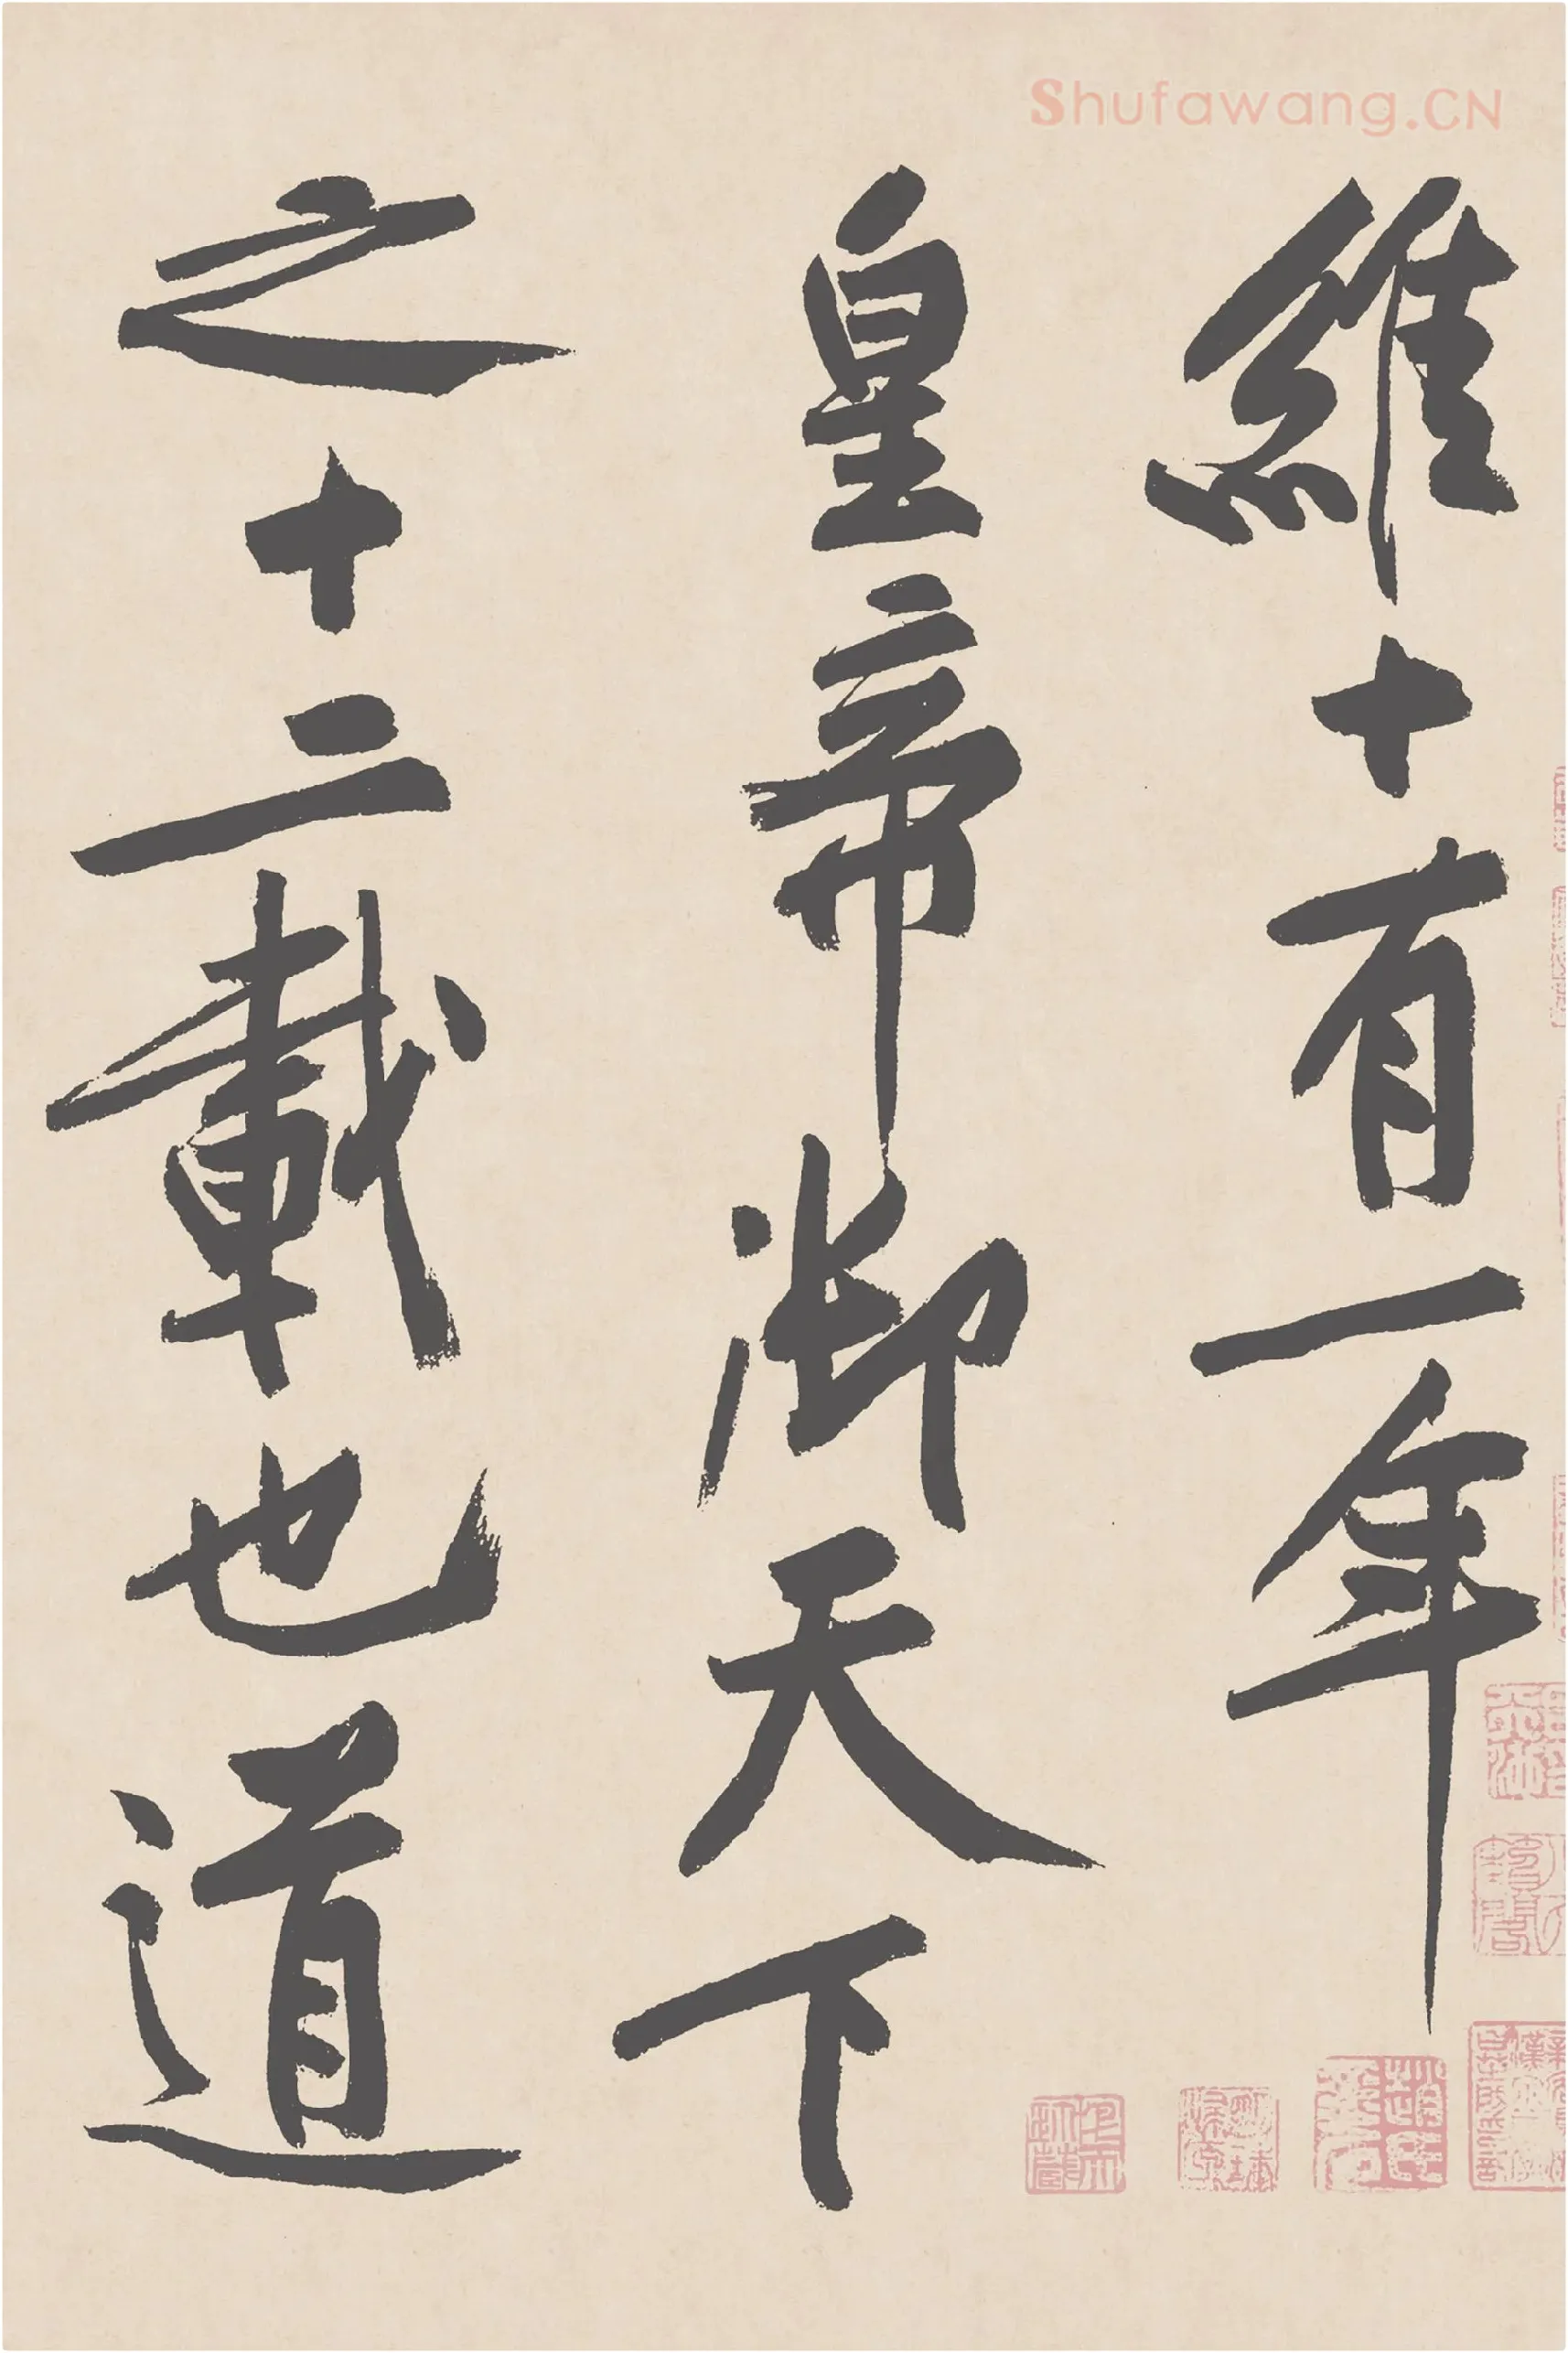 Shufawang.CN
維十有一年
皇帝御天下
之十二載也道